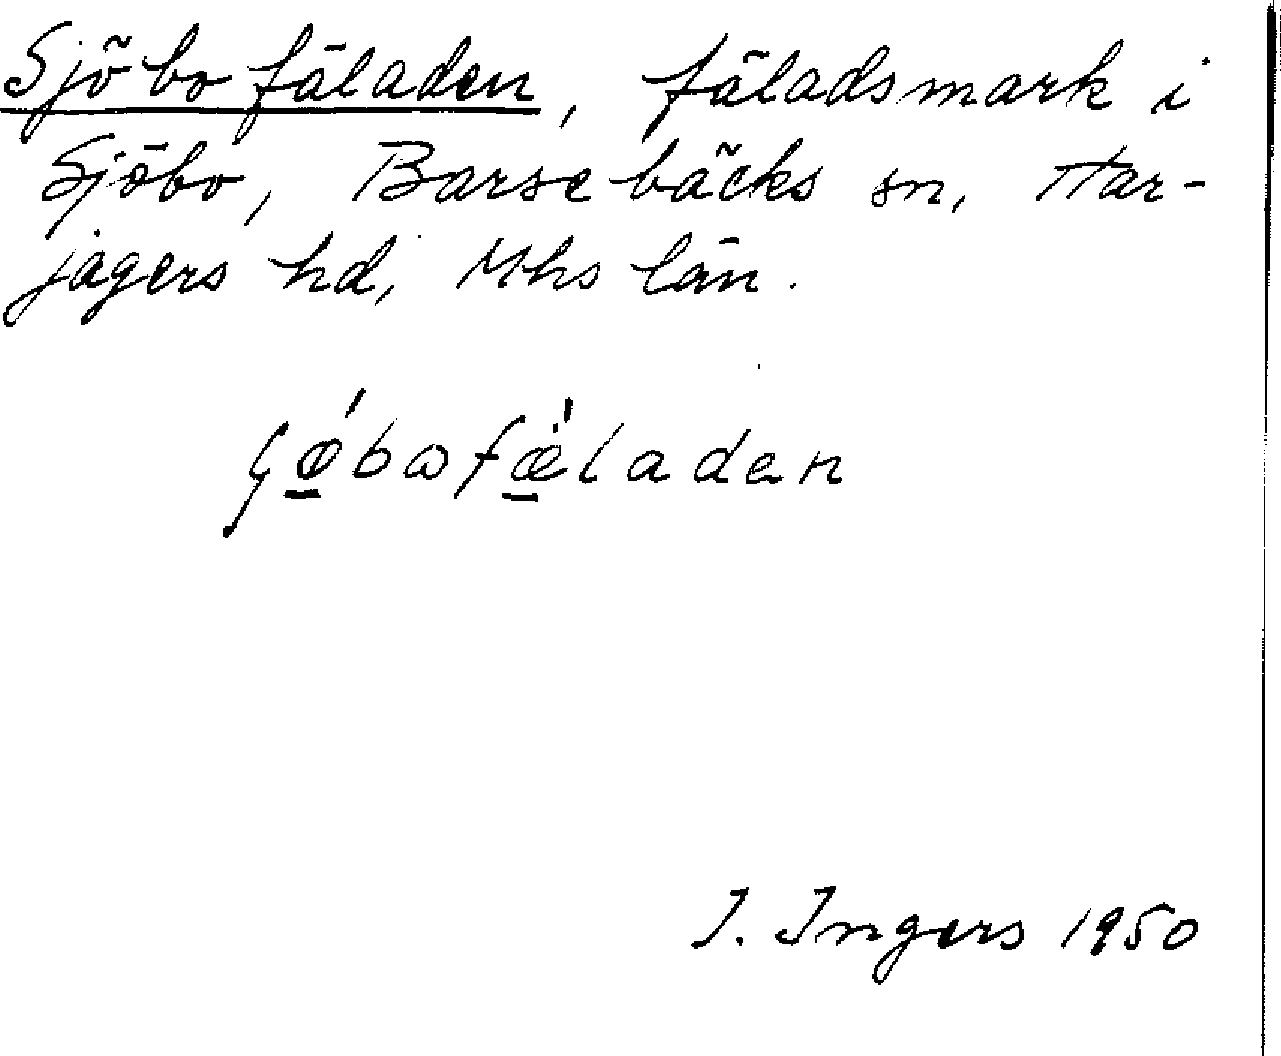 Sjöbo fäladen, fäladsmark i
Sjöbo, Barsebäcks sn, Har-
jagers hd, Mhs län.
ʃǿbωfæ̀laden
I. Ingers 1950